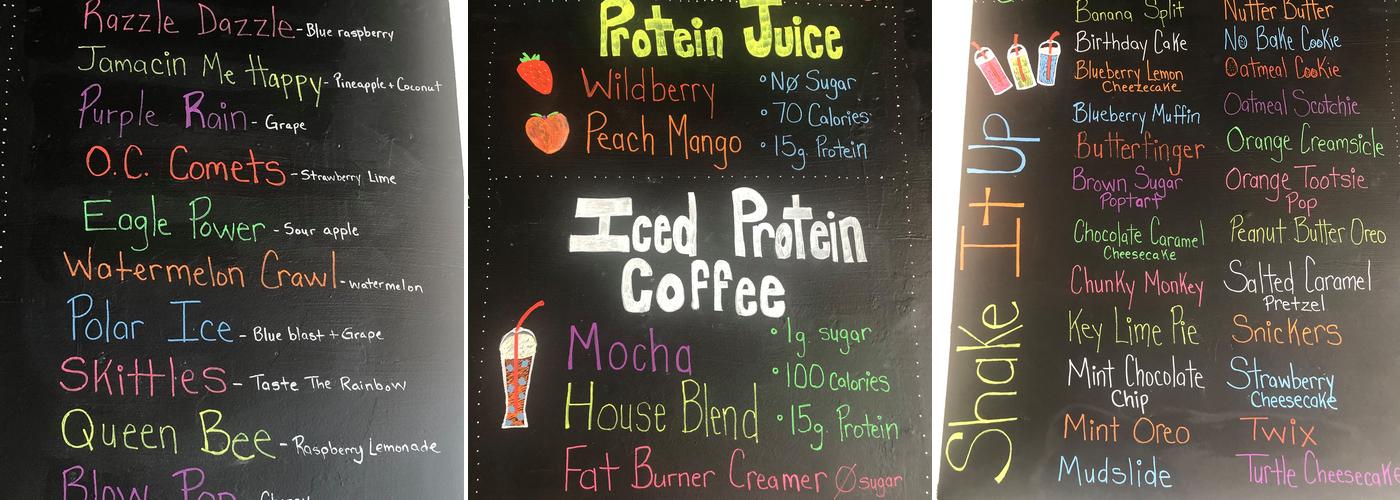 Razzle Dazzle - Blue raspberry
Jamacin Me Happy - Pineapple + Coconut
Purple Rain - Grape
O.C. Comets - Strawberry Lime
Eagle Power - Sour apple
Watermelon Crawl - watermelon
Polar Ice - Blue blast + Grape
Skittles - Taste The Rainbow
Queen Bee - Raspberry Lemonade
Blow Pop
Protein Juice
Wildberry
Peach Mango
° NØ Sugar
° 70 Calories
° 15g. Protein
Iced Protein
Coffee
Mocha
House Blend
° 1g. sugar
° 100 calories
° 15g. Protein
Fat Burner Creamer Ø sugar
Shake It Up
Banana Split
Birthday Cake
Blueberry Lemon
Cheezecake
Blueberry Muffin
Butterfinger
Brown Sugar
Poptart
Chocolate Caramel
Cheesecake
Chunky Monkey
Key Lime Pie
Mint Chocolate
Chip
Mint Oreo
Mudslide
Nutter Butter
No Bake Cookie
Oatmeal Cookie
Oatmeal Scotchie
Orange Creamsicle
Orange Tootsie
Pop
Peanut Butter Oreo
Salted Caramel
Pretzel
Snickers
Strawberry
Cheesecake
Twix
Turtle Cheesecak